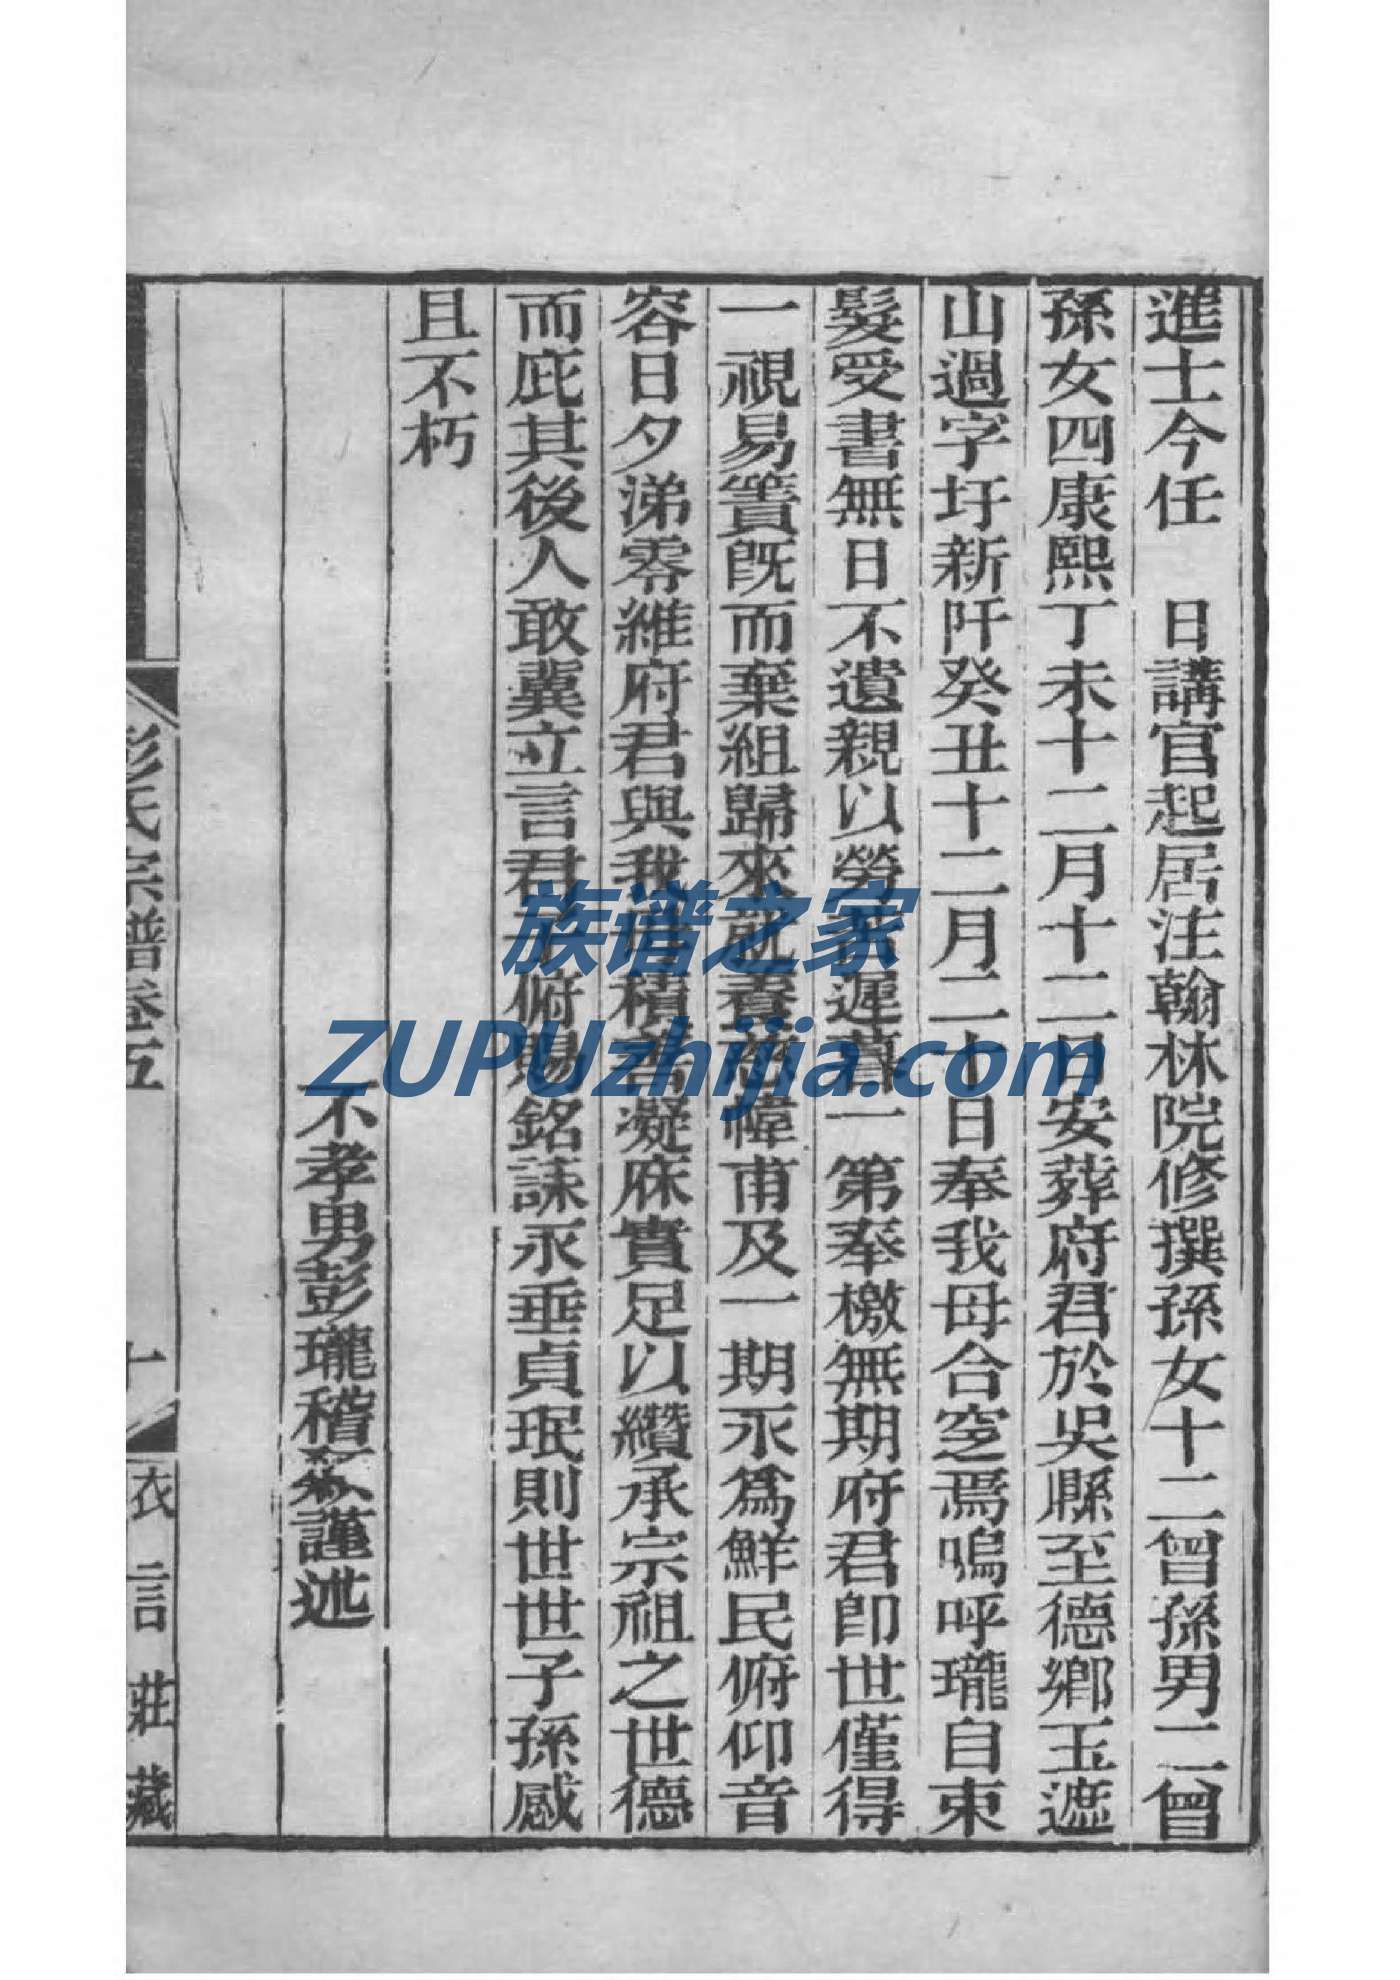 進士今任 日講官起居注翰林院修撰孫女十二曾孫男二曾
孫女四康熙丁未十二月十二日安葬府君於吳縣至德鄉玉遮
山過字圩新阡癸丑十二月二十日奉我母合窆焉嗚呼瓏自束
髮受書無日不遺親以勞苦遲暮一第奉檄無期府君卽世僅得
一視易簀旣而棄組歸來就養慈幃甫及一期永爲鮮民俯仰音
容日夕涕零維府君與我母積善凝庥實足以纘承宗祖之世德
而庇其後人敢冀立言君子俯賜銘誄永垂貞珉則世世子孫感
且不朽
不孝男彭瓏稽顙謹述
彭氏宗譜卷五
十
衣言莊藏
族谱之家
ZUPUzhijia.com